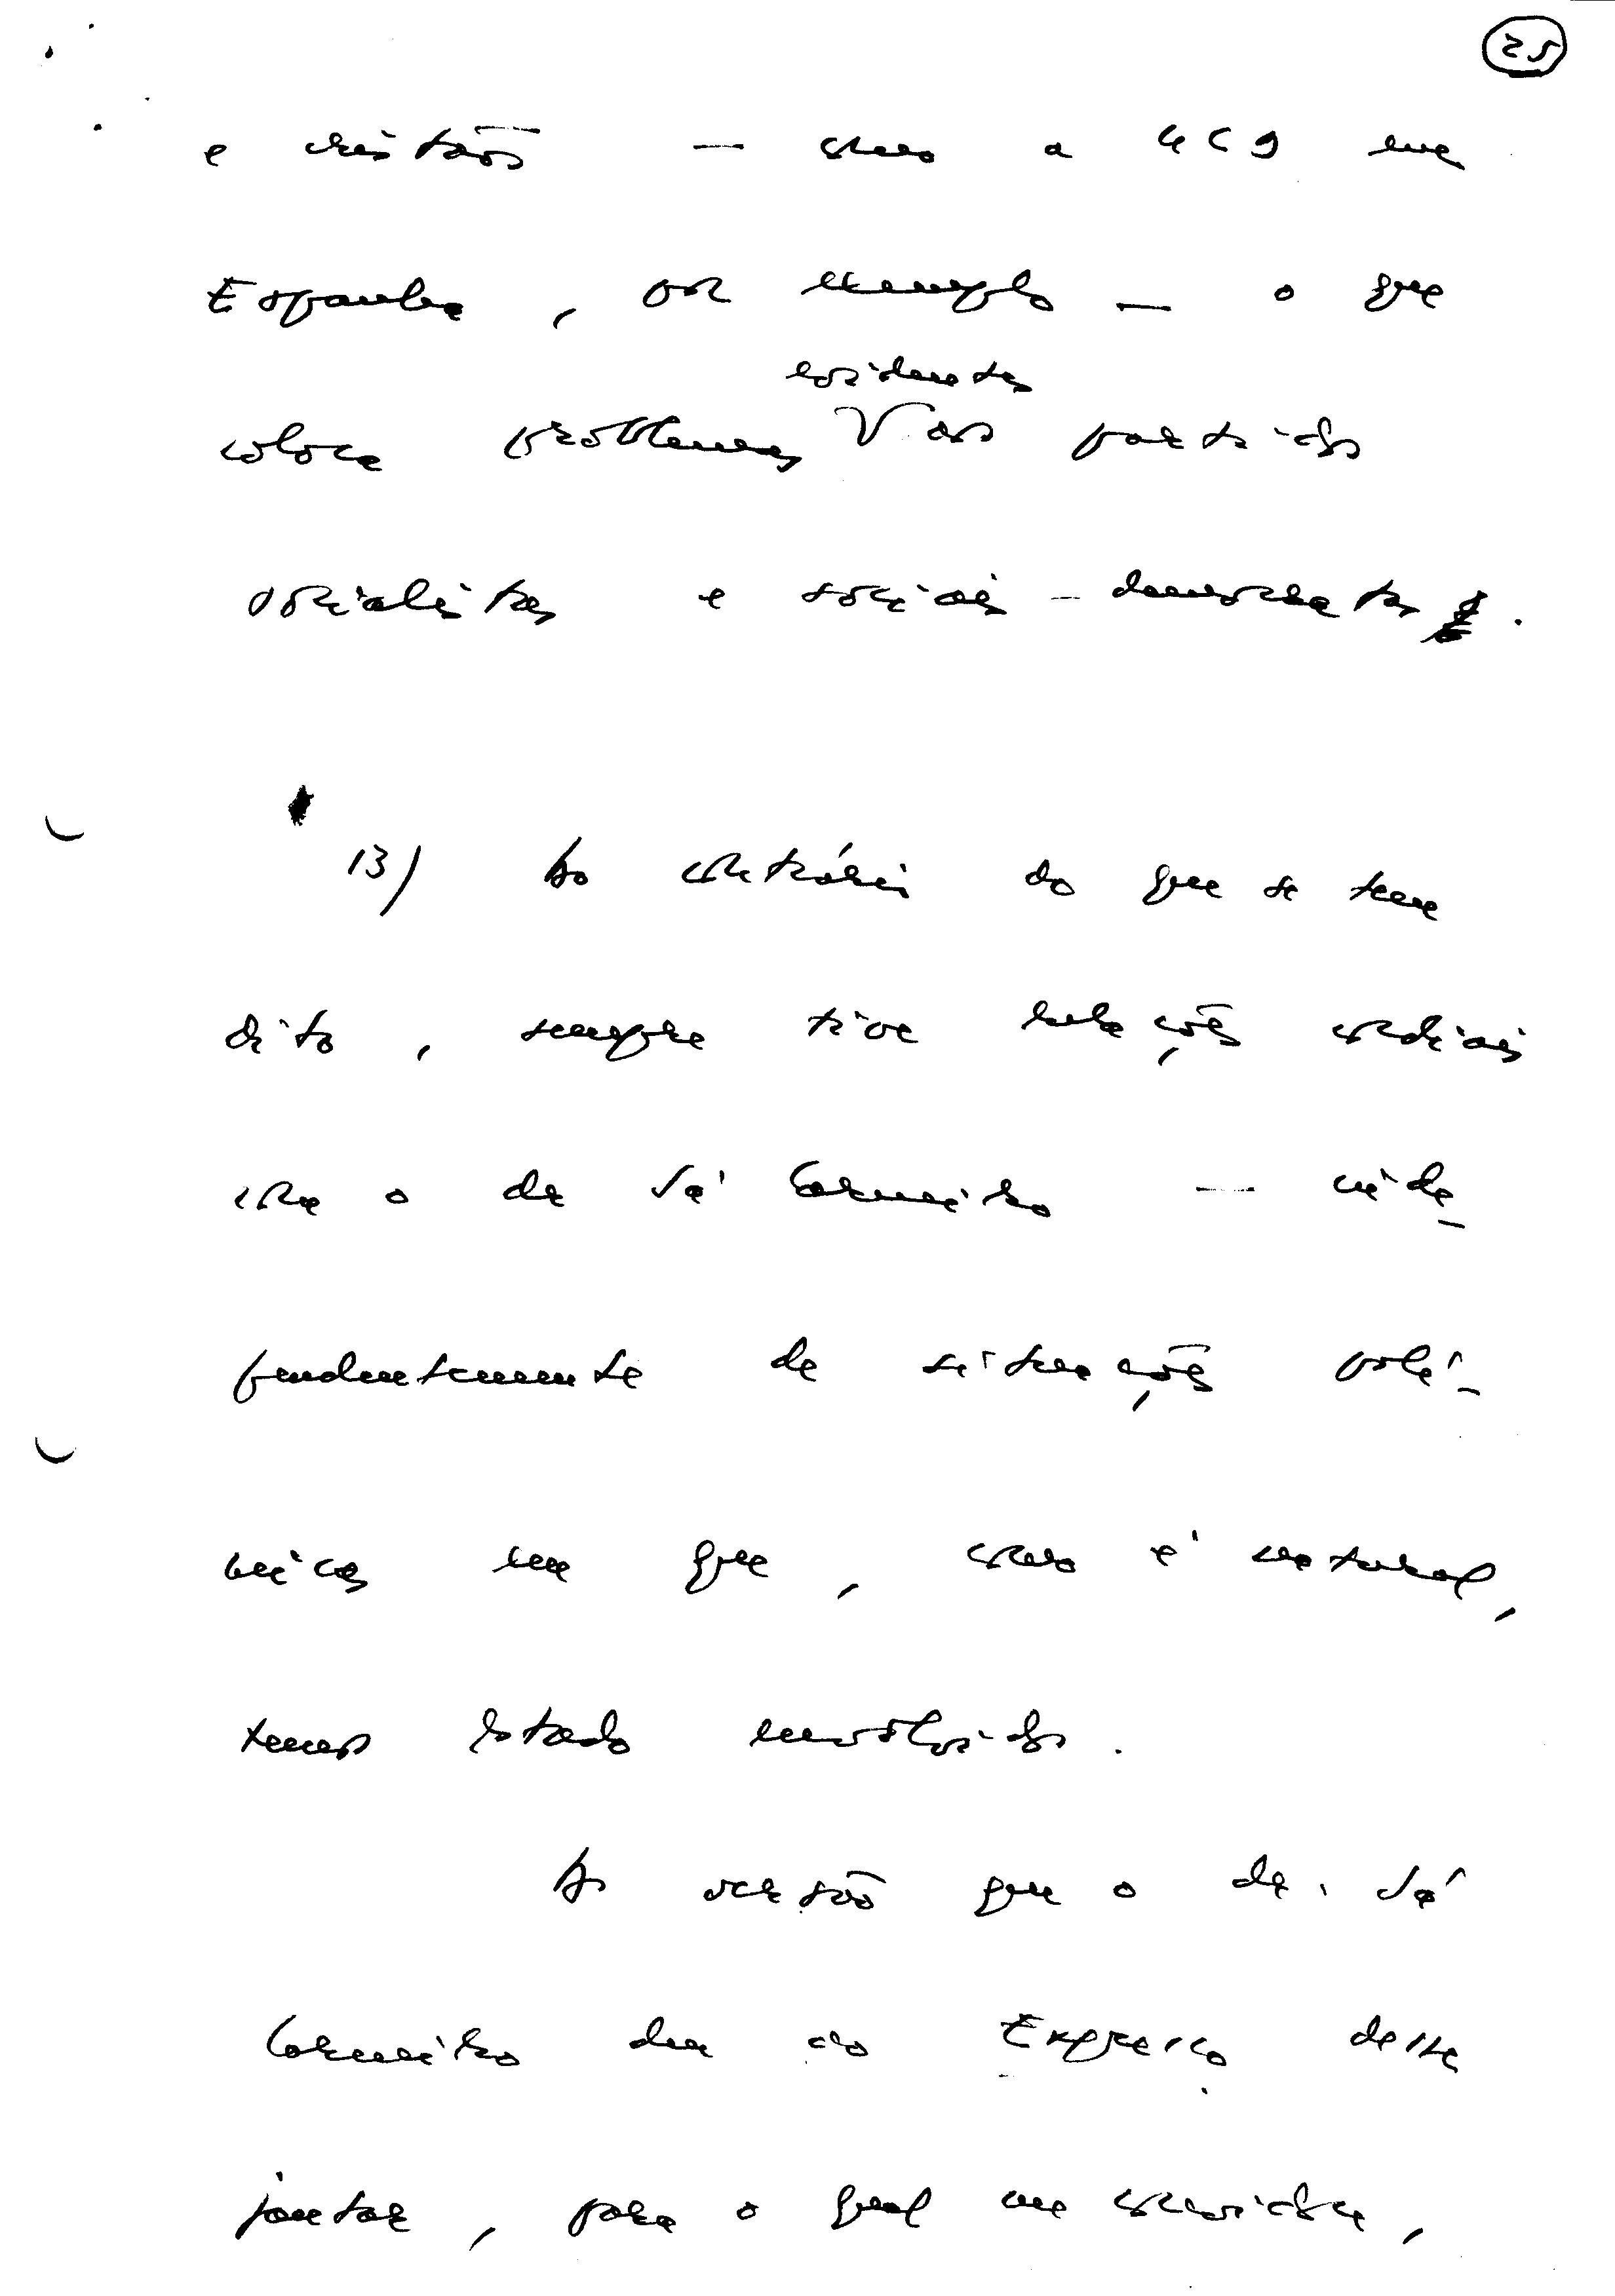 25
e cristãos — como a UCD em
Espanha, por exemplo — o que
evidentes
coloca problemas V aos partidos
socialistas e sociais-democratas.
13) Ao contrário do que se tem
dito, sempre tive relações cordiais
com o dr Sá Carneiro — inde-
pendentemente de situações polé-
micas em que, como é natural,
temos estado envolvidos.
A versão que o dr. Sá
Carneiro deu ao Expresso deste
jantar, para o qual me convidou,